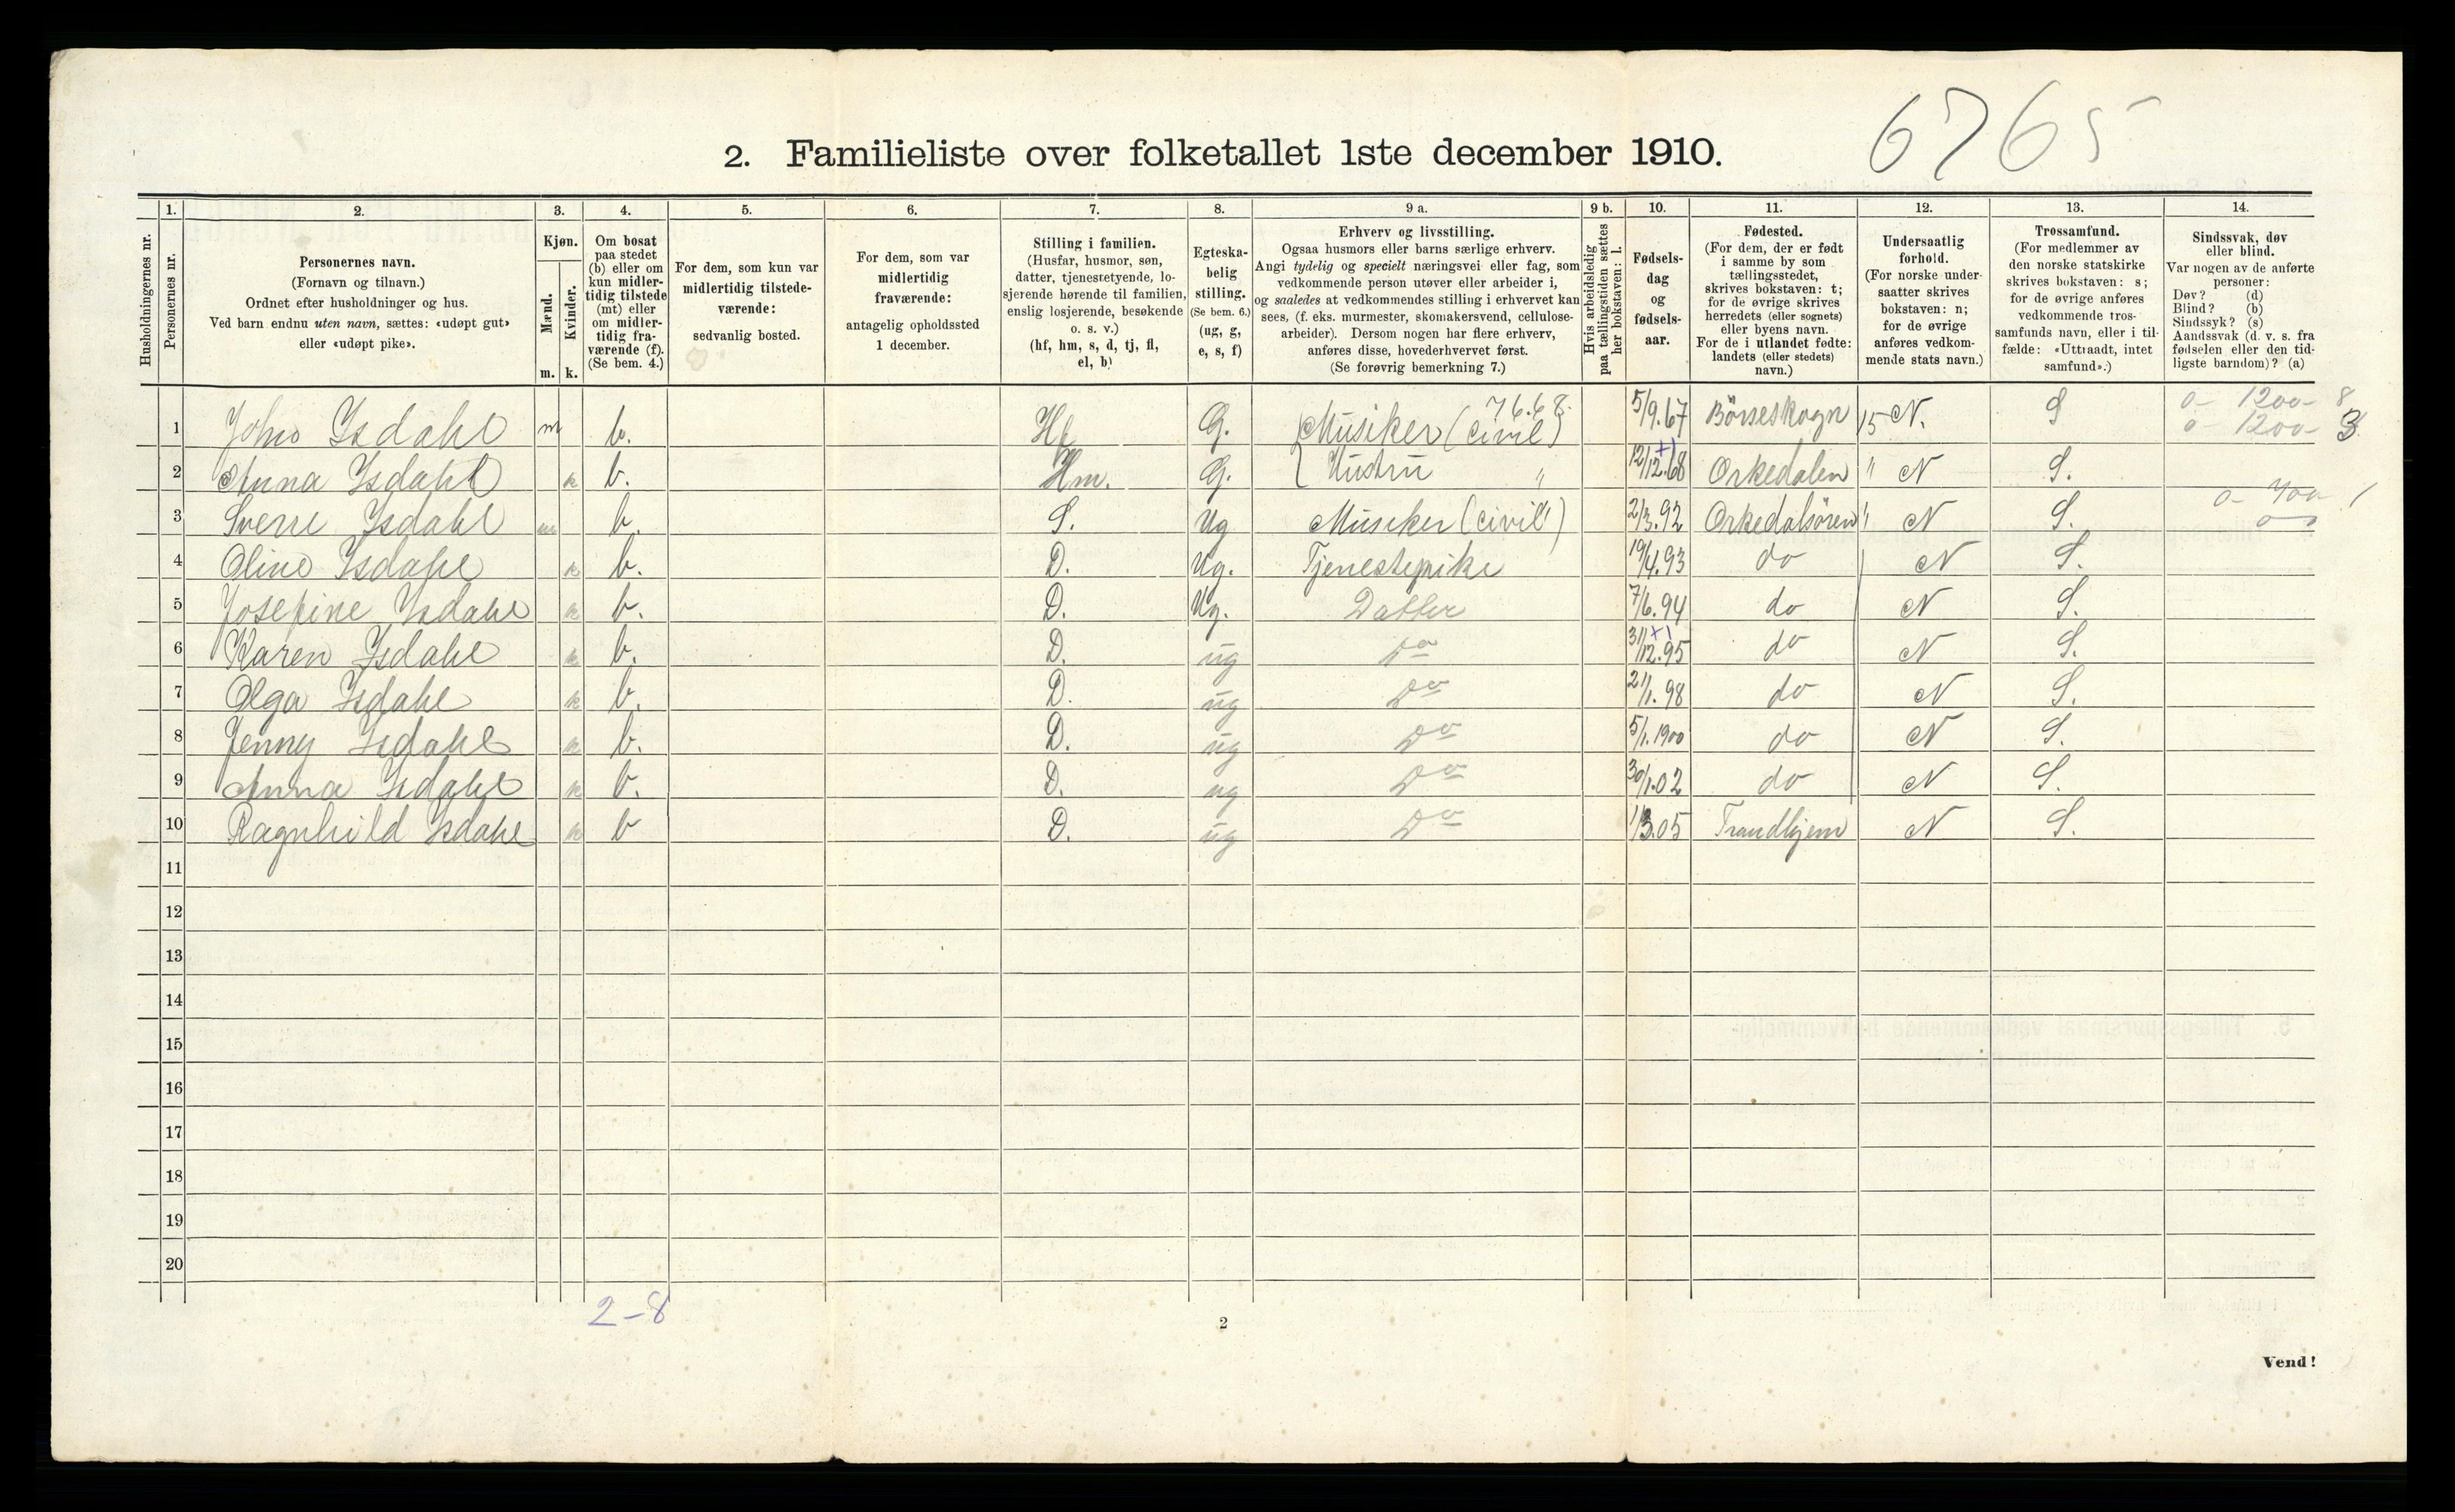 6765
2. Familieliste over folketallet 1ste december 1910.
Husholdningernes nr.
1. Personernes nr.
2. Personernes navn. (Fornavn og tilnavn.) Ordnet efter husholdninger og hus. Ved barn endnu uten navn, sættes: «udøpt gut» eller «udøpt pike».
3. Kjøn. Mænd. m. Kvinder. k.
4. Om bosat paa stedet (b) eller om kun midlertidig tilstede (mt) eller om midlertidig fraværende (f). (Se bem. 4.)
5. For dem, som kun var midlertidig tilstedeværende: sedvanlig bosted.
6. For dem, som var midlertidig fraværende: antagelig opholdssted 1 december.
7. Stilling i familien. (Husfar, husmor, søn, datter, tjenestetyende, losjerende hørende til familien, enslig losjerende, besøkende o. s. v.) (hf, hm, s, d, tj, fl, el, b)
8. Egteskabelig stilling. (Se bem. 6.) (ug, g, e, s, f)
9 a. Erhverv og livsstilling. Ogsaa husmors eller barns særlige erhverv. Angi tydelig og specielt næringsvei eller fag, som vedkommende person utøver eller arbeider i, og saaledes at vedkommendes stilling i erhvervet kan sees, (f. eks. murmester, skomakersvend, cellulosearbeider). Dersom nogen har flere erhverv, anføres disse, hovederhvervet først. (Se forøvrig bemerkning 7.)
9 b. Hvis arbeidsledig paa tællingstiden sættes her bokstaven: l.
10. Fødselsdag og fødselsaar.
11. Fødested. (For dem, der er født i samme by som tællingsstedet, skrives bokstaven: t; for de øvrige skrives herredets (eller sognets) eller byens navn. For de i utlandet fødte: landets (eller stedets) navn.)
12. Undersaatlig forhold. (For norske undersaatter skrives bokstaven: n; for de øvrige anføres vedkommende stats navn.)
13. Trossamfund. (For medlemmer av den norske statskirke skrives bokstaven: s; for de øvrige anføres vedkommende trossamfunds navn, eller i tilfælde: «Uttraadt, intet samfund».)
14. Sindssvak, døv eller blind. Var nogen av de anførte personer: Døv? (d) Blind? (b) Sindssyk? (s) Aandssvak (d. v. s. fra fødselen eller den tidligste barndom)? (a)
1 John Isdahl m b. Hf G. Musiker (civil) 76.68. 5/9.67 Börseskogn 15 N. S 0 - 1200 - 8 0 - 1200 - 3
2 Anna Isdahl k b. Hm. G. Hustru " 12/12.68 Orkedalen " N S.
3 Sverre Isdahl m b. S. Ug Musiker (civil) 2/3.92 Orkedalsören " N S. 0 - 400 1
4 Oline Isdahl k b. D. Ug. Tjenestepike 19/4.93 do N S.
5 Josefine Isdahl k b. D. Ug. Datter 7/6.94 do N S.
6 Karen Isdahl k b. D. ug Do 31/12.95 do N S.
7 Olga Isdahl k b. D. ug Do 21/1.98 do N S.
8 Jenny Isdahl k b. D. ug Do 5/1.1900 do N S.
9 Anna Isdahl k b. D. ug Do 30/1.02 do N S.
10 Ragnhild Isdahl k b D. ug Do 1/3.05 Trondhjem N S.
11
12
13
14
15
16
17
18
19
20
2-8
2
Vend!